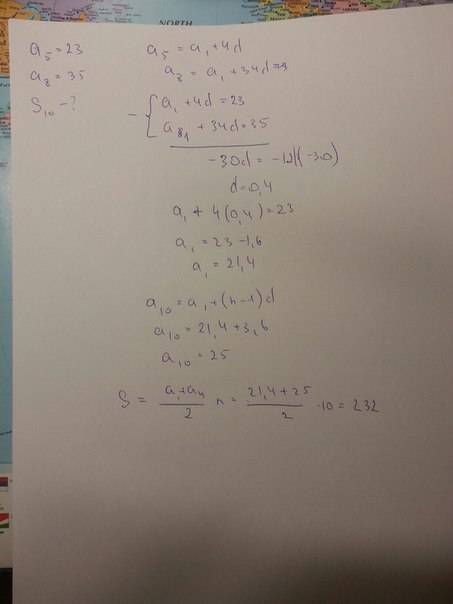 NORTH
a₅ = 23 a₅ = a₁ + 4d
a₈ = 35 a₈ = a₁ + 34d =>
S₁₀ - ?
- { a₁ + 4d = 23
a₁ + 34d = 35
-30d = -12 | (-30)
d = 0,4
a₁ + 4(0,4) = 23
a₁ = 23 - 1,6
a₁ = 21,4
a₁₀ = a₁ + (n - 1)d
a₁₀ = 21,4 + 3,6
a₁₀ = 25
S = (a₁ + aₙ)/2 n = (21,4 + 25)/2 · 10 = 232